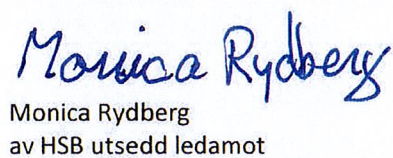 Monica Rydberg
Monica Rydberg
av HSB utsedd ledamot